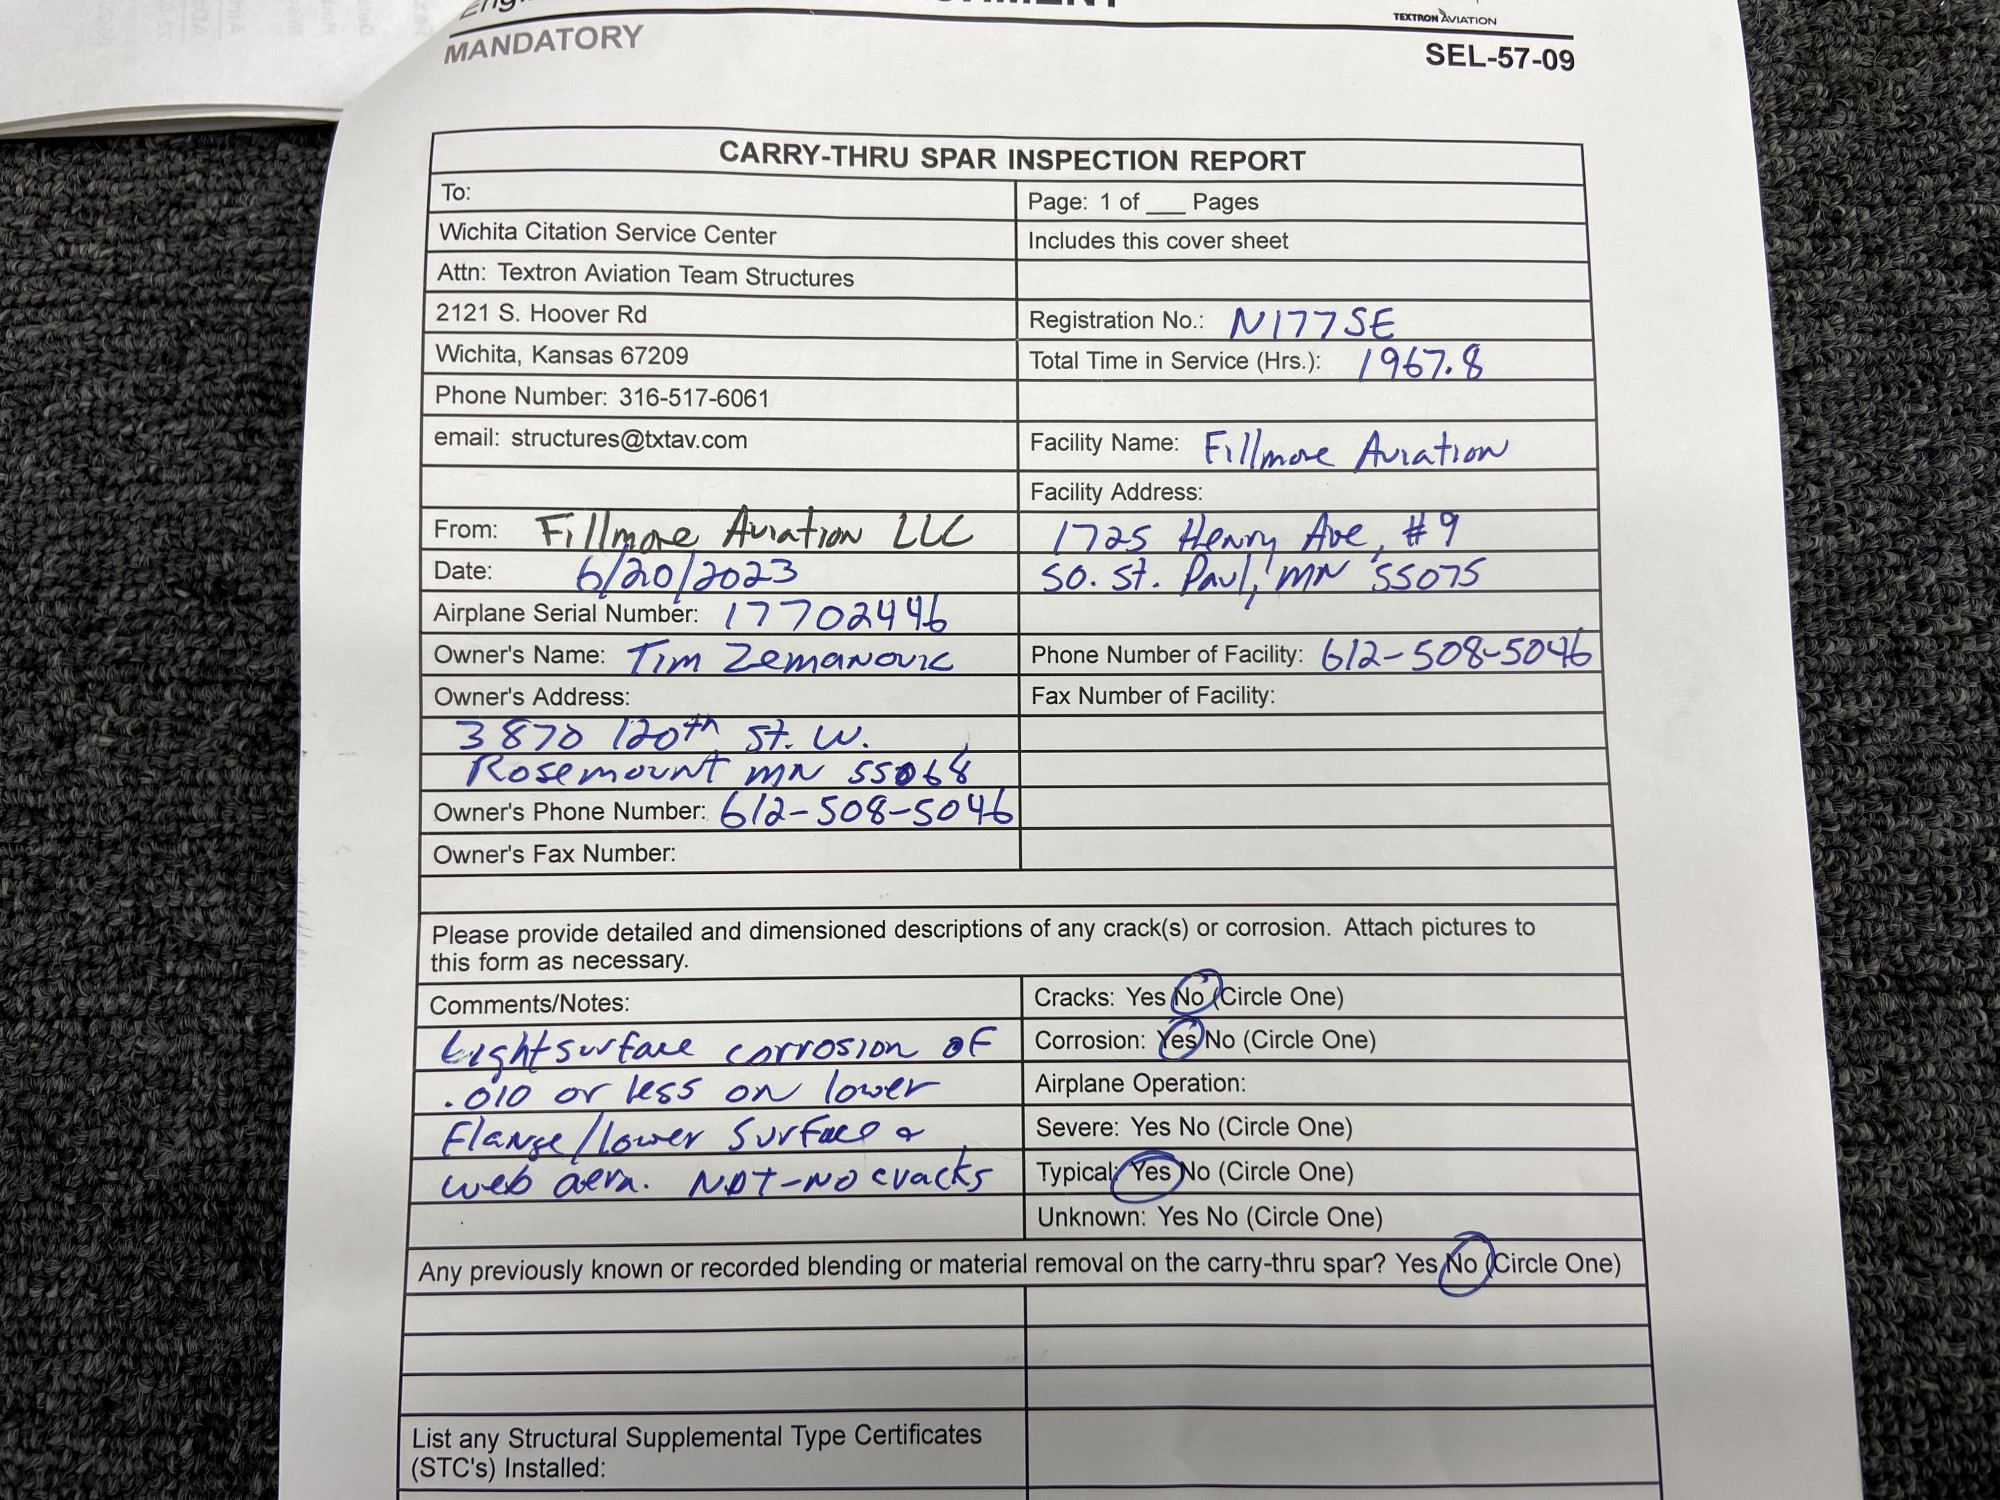 MANDATORY
TEXTRON AVIATION
SEL-57-09
CARRY-THRU SPAR INSPECTION REPORT
To:
Page: 1 of ___ Pages
Wichita Citation Service Center
Includes this cover sheet
Attn: Textron Aviation Team Structures
2121 S. Hoover Rd
Registration No.: N177SE
Wichita, Kansas 67209
Total Time in Service (Hrs.): 1967.8
Phone Number: 316-517-6061
email: structures@txtav.com
Facility Name: Fillmore Aviation
Facility Address:
From: Fillmore Aviation LLC
1725 Henry Ave, #9
Date: 6/20/2023
So. St. Paul, MN 55075
Airplane Serial Number: 17702446
Owner's Name: Tim Zemanovic
Phone Number of Facility: 612-508-5046
Owner's Address:
Fax Number of Facility:
3870 120th St. W.
Rosemount MN 55068
Owner's Phone Number: 612-508-5046
Owner's Fax Number:
Please provide detailed and dimensioned descriptions of any crack(s) or corrosion. Attach pictures to
this form as necessary.
Comments/Notes:
Cracks: Yes No (Circle One)
Light surface corrosion of
Corrosion: Yes No (Circle One)
.010 or less on lower
Airplane Operation:
Flange/lower surface &
Severe: Yes No (Circle One)
web aera. NDT-No cracks
Typical: Yes No (Circle One)
Unknown: Yes No (Circle One)
Any previously known or recorded blending or material removal on the carry-thru spar? Yes No (Circle One)
List any Structural Supplemental Type Certificates
(STC's) Installed: